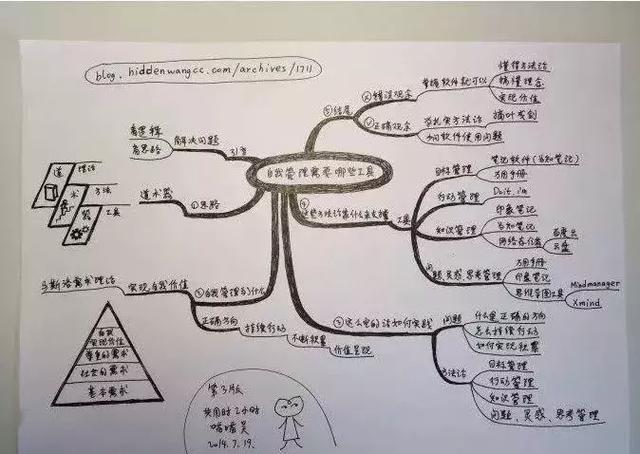 blog.hiddenwangcc.com/archives/1711
自我管理需要哪些工具
引言
解决问题
看思维
看思路
①思路
道术器
道 理论
术 方法
器 工具
②自我管理为了什么
实现自我价值
马斯洛需求理论
自我
实现价值
尊重的需求
社会的需求
基本需求
正确方向
持续行动
不断积累
价值呈现
③这么空的话如何实践
问题
什么是正确的方向
怎么持续行动
如何实现积累
方法论
目标管理
行动管理
知识管理
问题、灵感、思考管理
④这些方法论靠什么来支撑
工具
目标管理
笔记软件(为知笔记)
方圆手册
行动管理
Doit.im
知识管理
印象笔记
为知笔记
网络存储
百度云
云盘
问题、灵感、思考管理
方圆手册
印象笔记
思维导图工具
Mindmanager
Xmind
⑤结尾
错误观念
掌握软件就可以
懂得方法论
精通理念
实现价值
正确观念
夯扎实方法论
摘叶成剑
如何软件使用问题
第3版
共用时2小时
嘻嘻吴
2014.7.19.